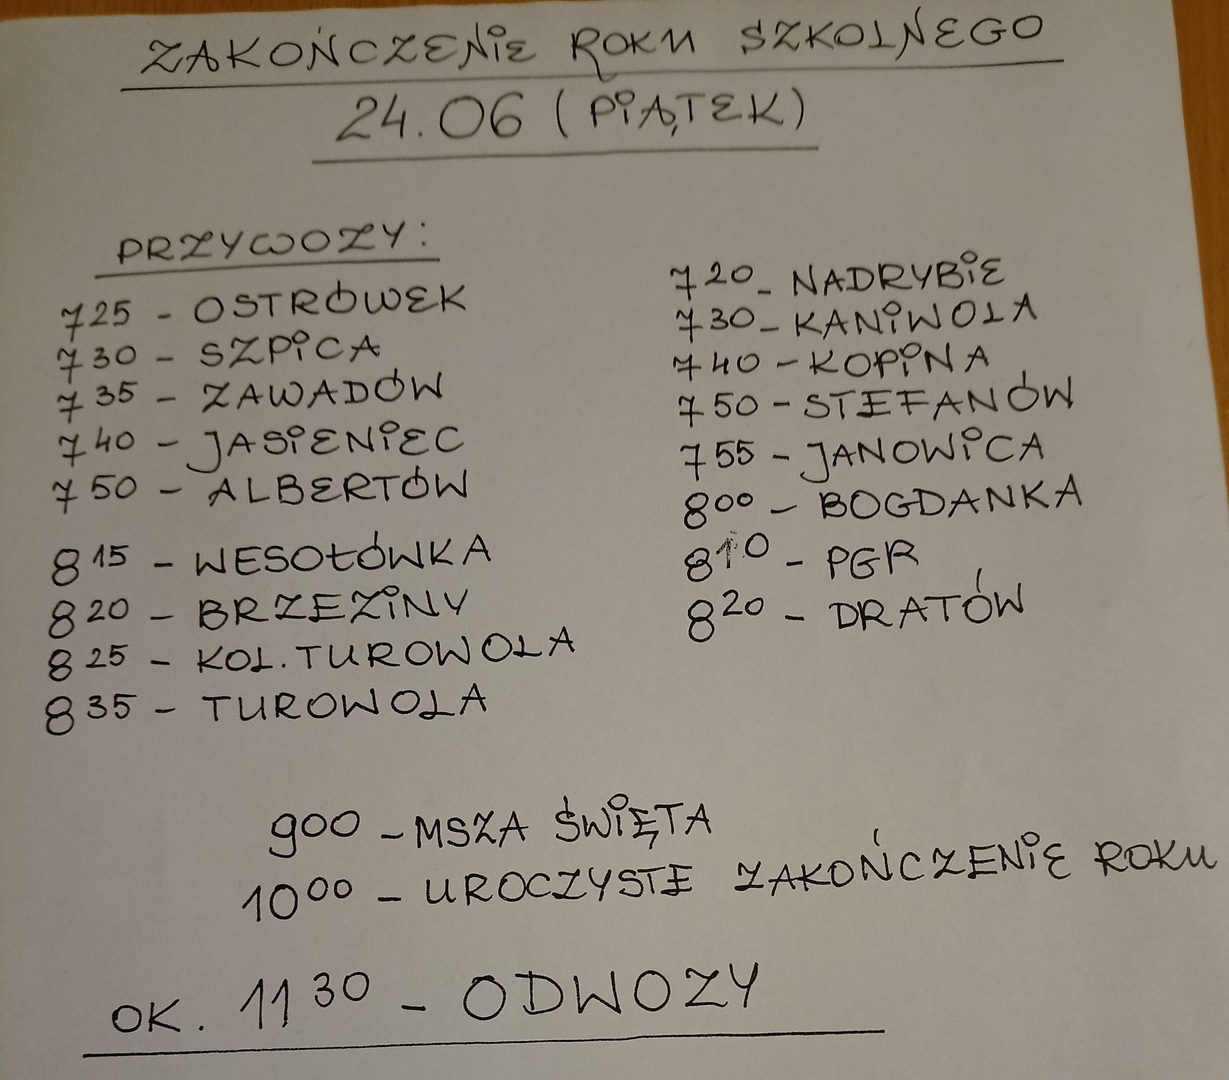 ZAKOŃCZENIE ROKU SZKOLNEGO
24.06 (PIĄTEK)
PRZYWOZY:
7 25 - OSTRÓWEK
7 30 - SZPICA
7 35 - ZAWADÓW
7 40 - JASIENIEC
7 50 - ALBERTÓW
8 15 - WESOŁÓWKA
8 20 - BRZEZINY
8 25 - KOL. TUROWOLA
8 35 - TUROWOLA
7 20 - NADRYBIE
7 30 - KANIWOLA
7 40 - KOPINA
7 50 - STEFANÓW
7 55 - JANOWICA
8 00 - BOGDANKA
8 10 - PGR
8 20 - DRATÓW
9 00 - MSZA ŚWIĘTA
10 00 - UROCZYSTE ZAKOŃCZENIE ROKU
OK. 11 30 - ODWOZY